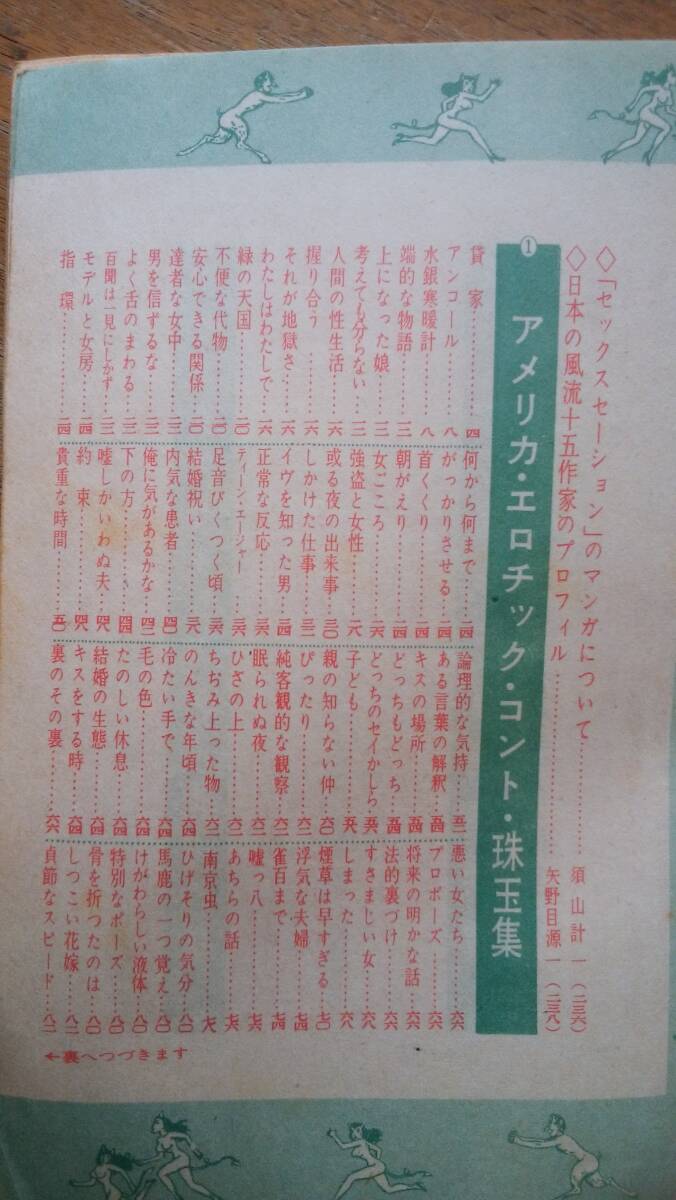 ◇「セックスセーション」のマンガについて……………須山計一(二三六)
◇日本の風流十五作家のプロフィル……………矢野目源一(二三八)
① アメリカ・エロチック・コント・珠玉集
貸家……四
アンコール……八
水銀寒暖計……八
端的な物語……一二
上になった娘……一二
考えても分らない……一二
人間の性生活……一二
握り合う……一六
それが地獄さ……一六
わたしはわたしで……一六
緑の天国……二〇
不便な代物……二〇
安心できる関係……二〇
達者な女中……二二
男を信ずるな……二二
よく舌のまわる……二二
百聞は一見にしかず……二二
モデルと女房……二四
指環……二四
何から何まで……二四
がっかりさせる……二四
首くくり……二四
朝がえり……二六
女ごころ……二六
強盗と女性……二八
或る夜の出来事……三〇
しかけた仕事……三二
イヴを知った男……三四
正常な反応……三四
ティーン・エージャー……三六
足音びくつく頃……三六
結婚祝い……三八
内気な患者……四〇
俺に気があるかな……四二
下の方……四四
嘘しかいわぬ夫……四八
約束……四八
貴重な時間……五〇
論理的な気持……五二
ある言葉の解釈……五四
キスの場所……五四
どっちもどっち……五四
どっちのセイかしら……五六
子ども……五八
親の知らない仲……六〇
ぴったり……六二
純客観的な観察……六二
眠られぬ夜……六二
ひざの上……六二
ちぢみ上った物……六二
のんきな年頃……六四
冷たい手で……六四
毛の色……六四
たのしい休息……六四
結婚の生態……六四
キスをする時……六四
裏のその裏……六六
悪い女たち……六六
プロポーズ……六六
将来の明かな話……六六
法的裏づけ……六六
すさまじい女……六八
しまった……六八
煙草は早すぎる……七〇
浮気な夫婦……七四
雀百まで……七四
嘘っ八……七六
あちらの話……七六
南京虫……七八
ひげそりの気分……八〇
馬鹿の一つ覚え……八〇
けがわらしい液体……八〇
特別なポーズ……八〇
骨を折つたのは……八〇
しつこい花嫁……八二
貞節なスピード……八二
←裏へつづきます